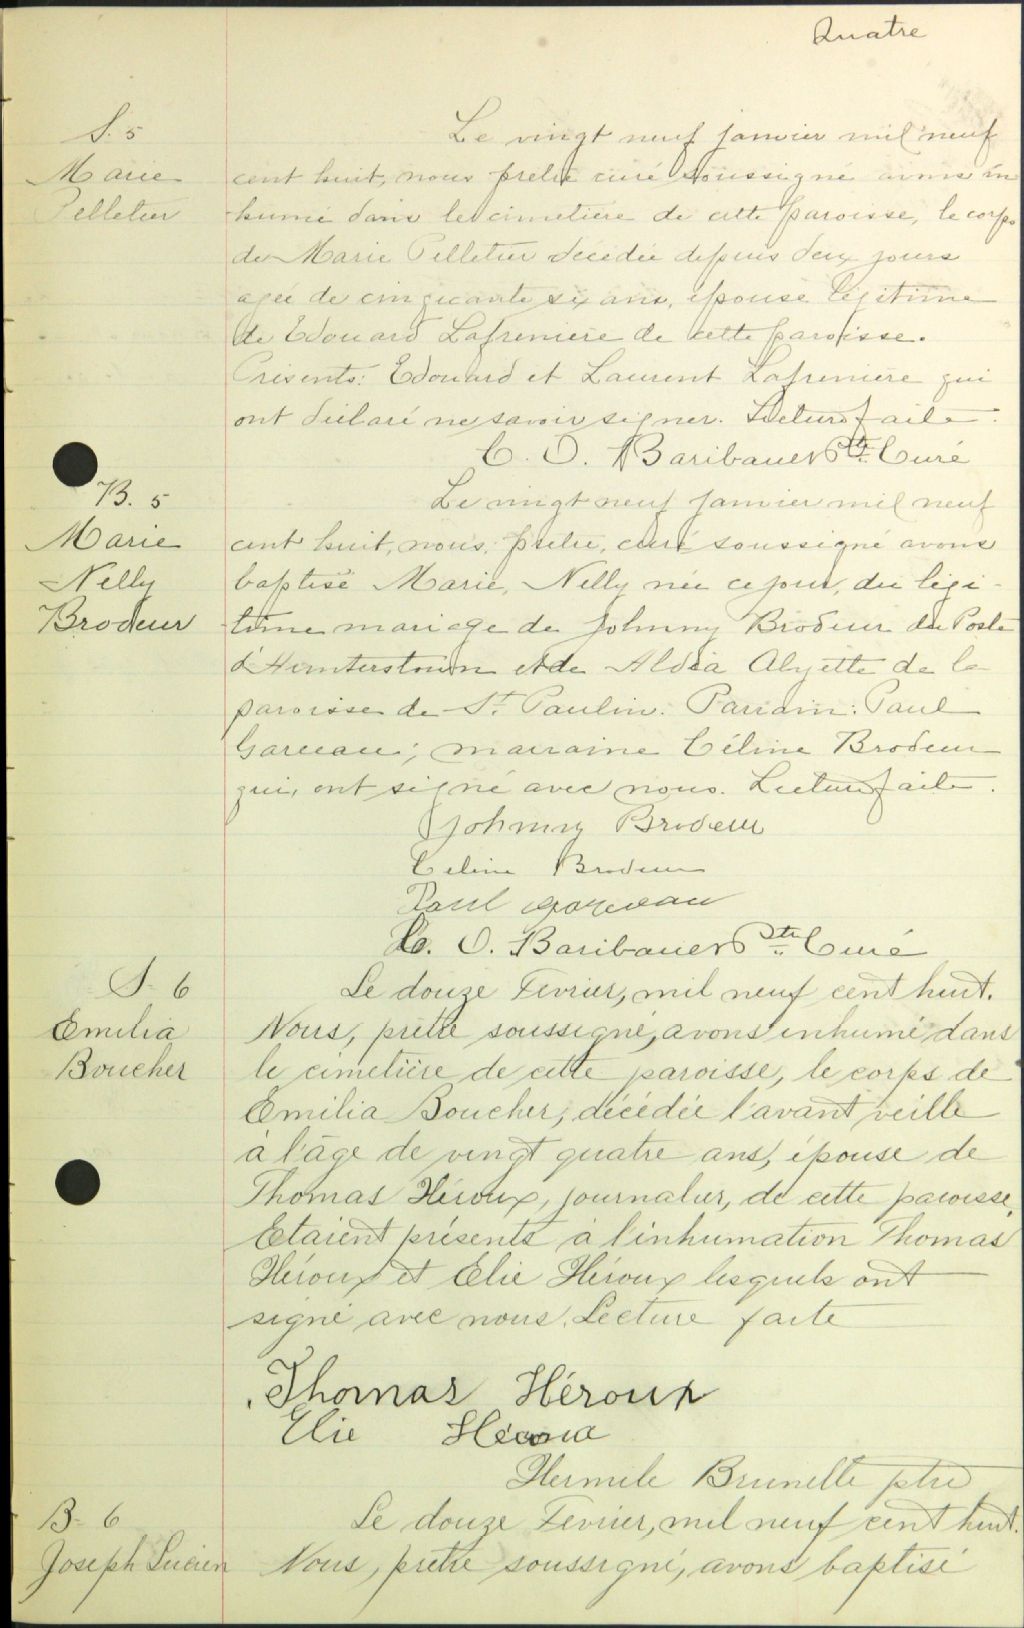 Quatre
S. 5
Marie
Pelletier
Le vingt neuf janvier mil neuf
cent huit, nous prêtre curé soussigné avons in
humé dans le cimetière de cette paroisse, le corps
de Marie Pelletier décédée depuis deux jours
agée de cinquante six ans, épouse légitime
de Edouard Lafrenière de cette paroisse.
Présents: Edouard et Laurent Lafrenière qui
ont déclaré ne savoir signer. Lecture faite.
C. O. Baribault Ptre Curé
B. 5
Marie
Nelly
Brodeur
Le vingt neuf janvier mil neuf
cent huit, nous, prêtre, curé soussigné avons
baptisé Marie, Nelly née ce jour, du légi-
time mariage de Johnny Brodeur du Poste
d'Hunterstown et de Aldéa Alyette de la
paroisse de St. Paulin. Parrain: Paul
Garceau; marraine Céline Brodeur
qui, ont signé avec nous. Lecture faite.
Johnny Brodeur
Celine Brodeur
Paul garceau
C. O. Baribault Ptre Curé
S- 6
Emilia
Boucher
Le douze Fevrier, mil neuf cent huit.
Nous, prêtre soussigné, avons inhumé dans
le cimetière de cette paroisse, le corps de
Emilia Boucher, décédée l'avant veille
à l'âge de vingt quatre ans, épouse de
Thomas Héroux, journalier, de cette paroisse.
Etaient présents à l'inhumation Thomas
Héroux et Elie Héroux lesquels ont
signé avec nous. Lecture faite
Thomas Héroux
Elie Héroux
Hermile Brunelle ptre
B- 6
Joseph Lucien
Le douze Fevrier, mil neuf cent huit.
Nous, prêtre soussigné, avons baptisé